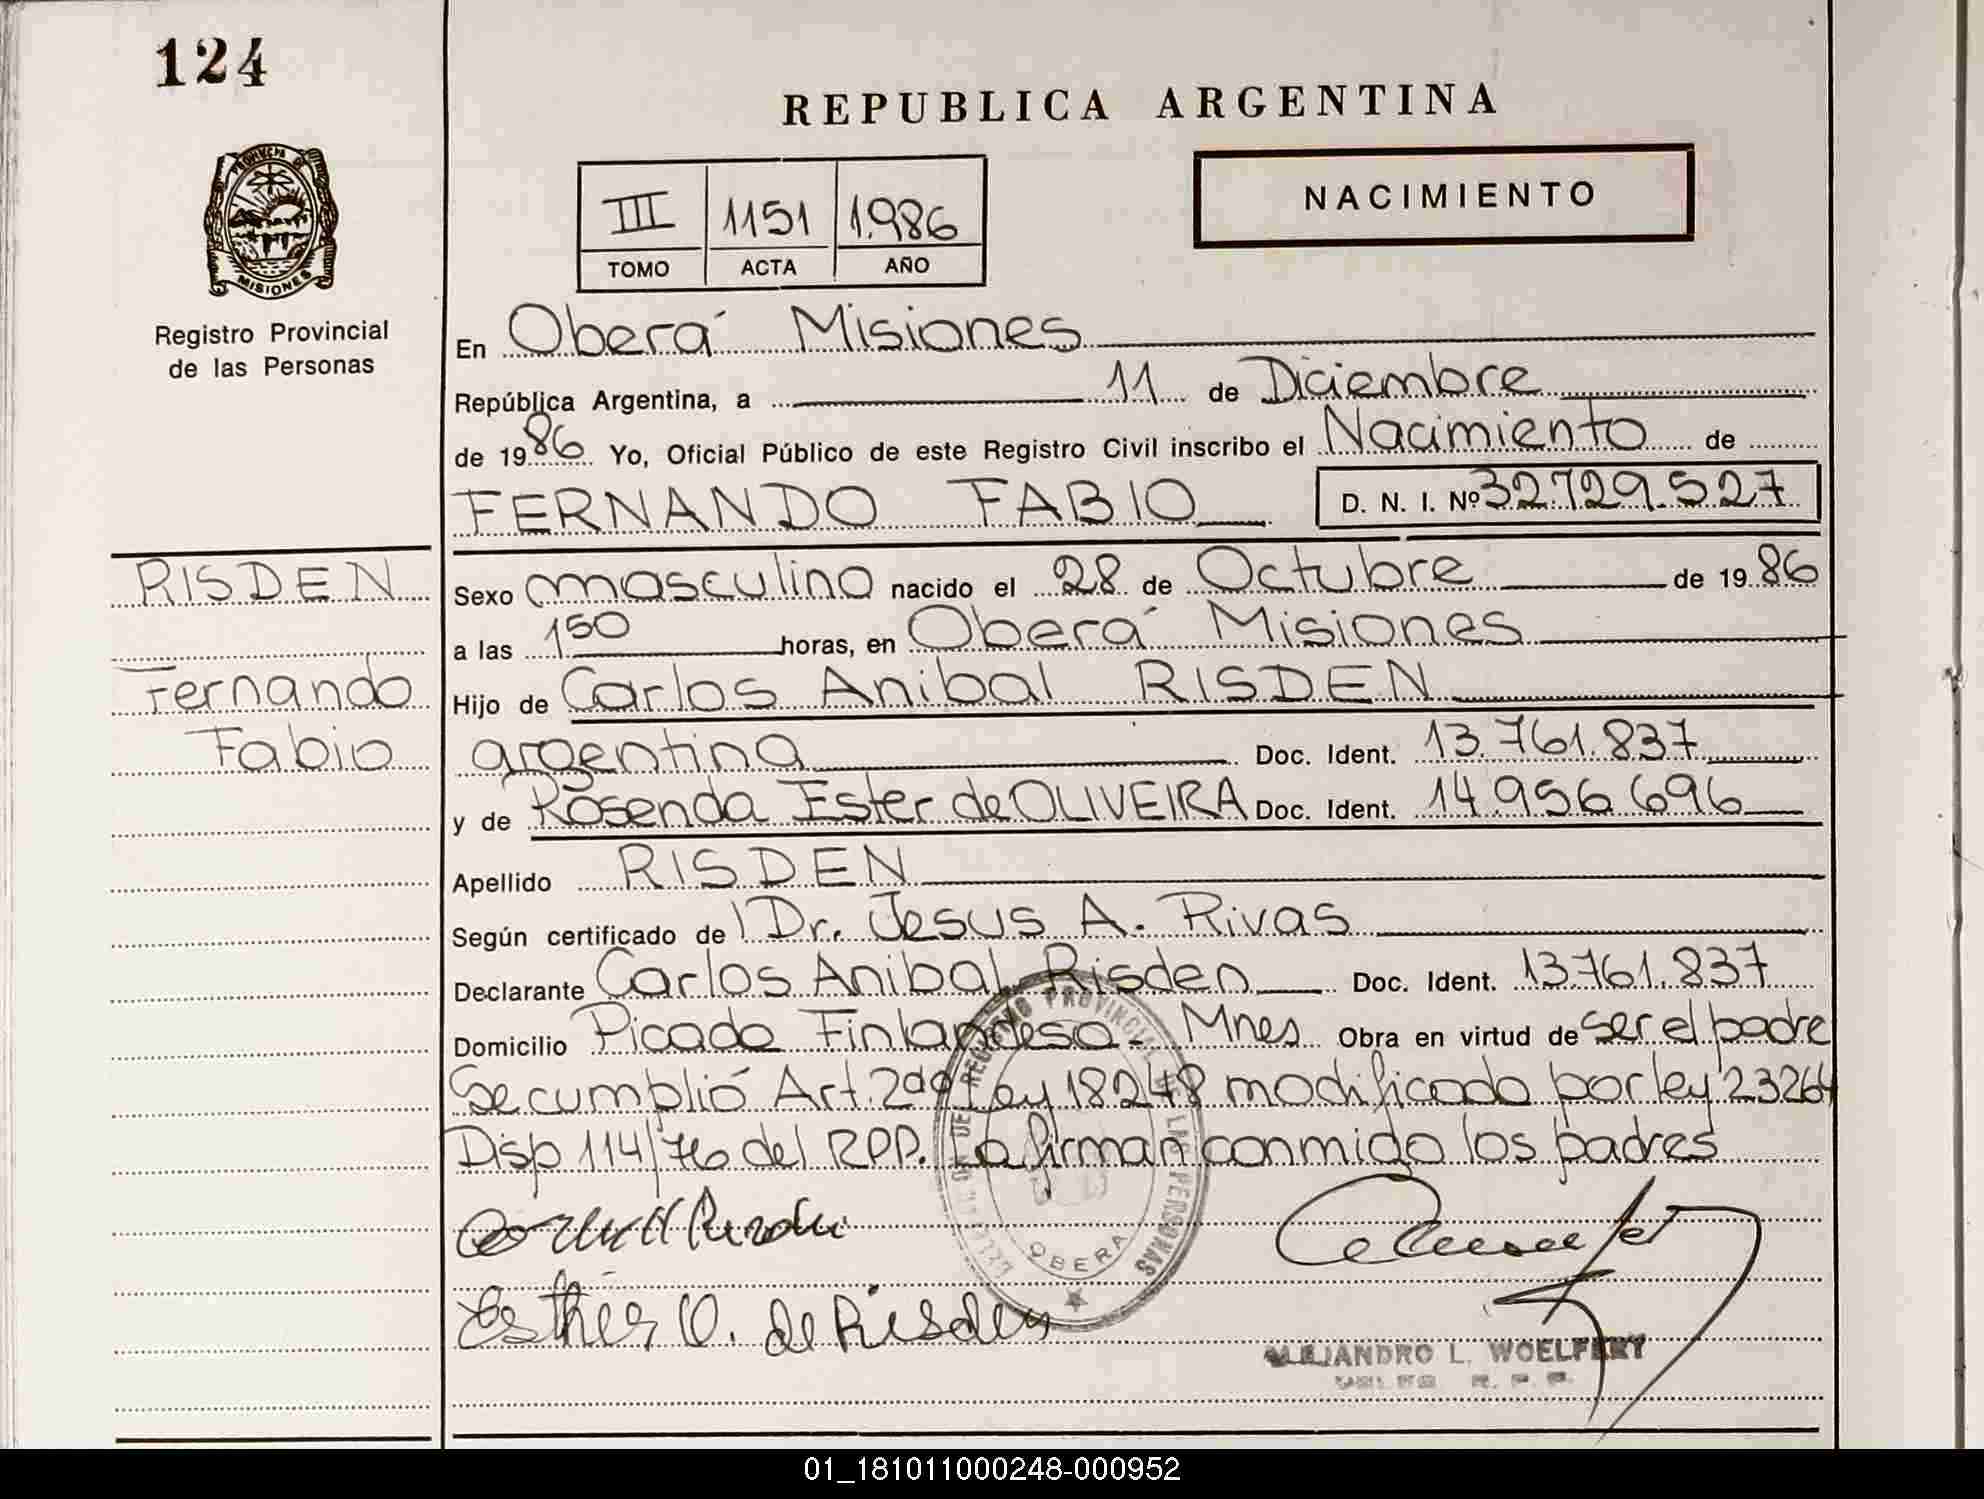 124
REPUBLICA ARGENTINA
PROVINCIA D
MISIONES
Registro Provincial
de las Personas
III 1151 1.986
TOMO ACTA AÑO
NACIMIENTO
En Oberá Misiones
República Argentina, a 11 de Diciembre
de 1986 Yo, Oficial Público de este Registro Civil inscribo el Nacimiento de
FERNANDO FABIO D. N. I. Nº 32.729.527
RISDEN
Fernando
Fabio
Sexo masculino nacido el 28 de Octubre de 1986
a las 150 horas, en Oberá Misiones
Hijo de Carlos Anibal RISDEN
argentina Doc. Ident. 13.761.837
y de Rosenda Ester de OLIVEIRA Doc. Ident. 14.956.696
Apellido RISDEN
Según certificado de Dr. Jesus A. Rivas
Declarante Carlos Anibal Risden Doc. Ident. 13.761.837
Domicilio Picada Finlandesa - Mnes Obra en virtud de ser el padre
Se cumplió Art. 2do Ley 18248 modificado por ley 23264
Disp 114/76 del RPP. La firman conmigo los padres
REGISTRO PROVINCIAL DE LAS PERSONAS
OBERA
Esther O. de Risden
ALEJANDRO L. WOELFERT
R. P. P.
01_181011000248-000952